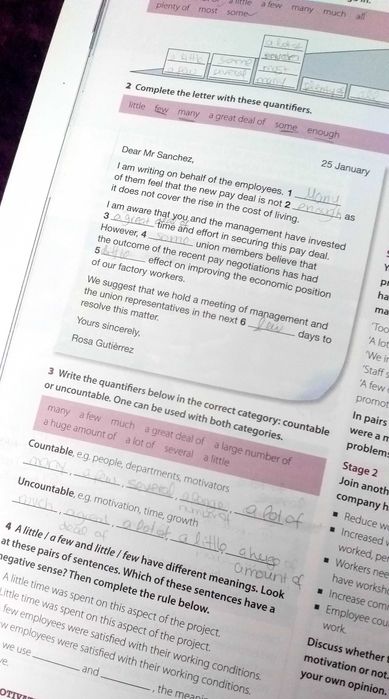 a little a few many much all
plenty of most some
a little
a few
some
several
a lot of
most
many
2 Complete the letter with these quantifiers.
little few many a great deal of some enough
25 January
Dear Mr Sanchez,
I am writing on behalf of the employees. 1 Many
of them feel that the new pay deal is not 2 enough as
it does not cover the rise in the cost of living.
I am aware that you and the management have invested
3 a great deal of time and effort in securing this pay deal.
However, 4 some union members believe that
the outcome of the recent pay negotiations has had
5 little effect on improving the economic position
of our factory workers.
We suggest that we hold a meeting of management and
the union representatives in the next 6 few days to
resolve this matter.
Yours sincerely,
Rosa Gutièrrez
3 Write the quantifiers below in the correct category: countable
or uncountable. One can be used with both categories.
many a few much a great deal of a large number of
a huge amount of a lot of several a little
Countable, e.g. people, departments, motivators
many, a few, several, a large number of, a lot of
Uncountable, e.g. motivation, time, growth
much, a great deal of, a lot of, a little, a huge amount of
4 A little / a few and little / few have different meanings. Look
at these pairs of sentences. Which of these sentences have a
negative sense? Then complete the rule below.
A little time was spent on this aspect of the project.
Little time was spent on this aspect of the project.
few employees were satisfied with their working conditions.
employees were satisfied with their working conditions.
we use and , the
'Too
'A lot
'We
'Staff
'A few
promot
In pairs
were a
problem
Stage 2
Join anoth
company h
Reduce
Increased
worked, per
Workers
have worksh
Increase
Employee
work.
Discuss whether
motivation or not
your own opinion.